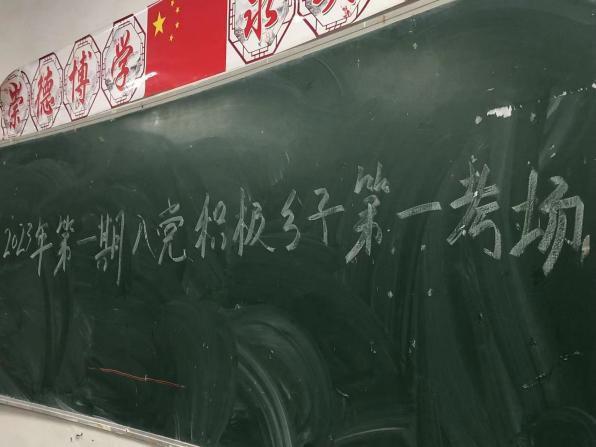 崇德博学 求
2023年第一期入党积极分子第一考场